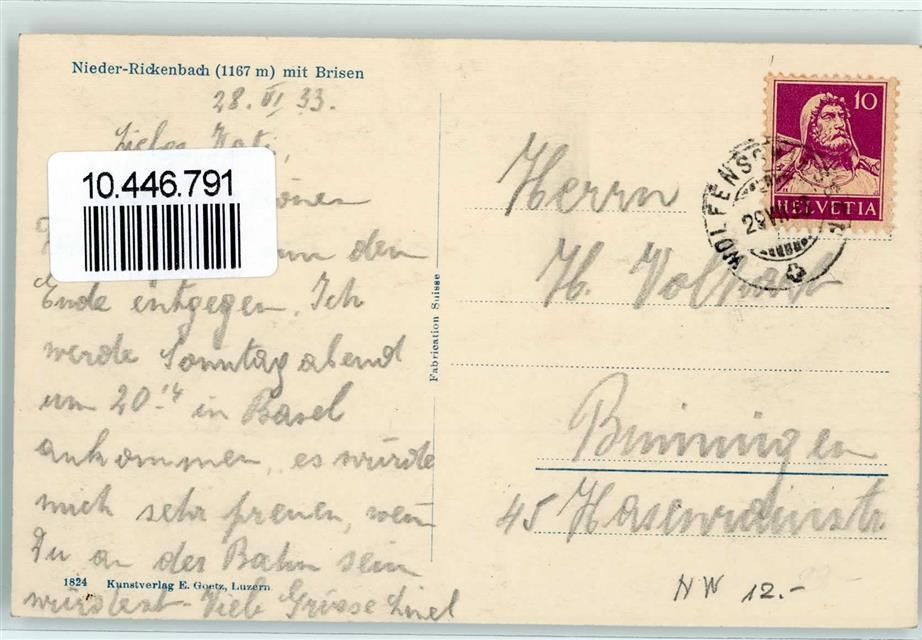 Nieder-Rickenbach (1167 m) mit Brisen
28. VI 33.
Lieber Vati,
10.446.791
den
Ende entgegen. Ich
werde Sonntag abend
um 20.14 in Basel
ankommen, es würde
mich sehr freuen, wenn
Du an der Bahn sein
würdest. Viele Grüsse
1824 Kunstverlag E. Goetz, Luzern
Fabrication Suisse
10
HELVETIA
WOLFENSCH
Herrn
H.
Binningen
45
NW 12.-